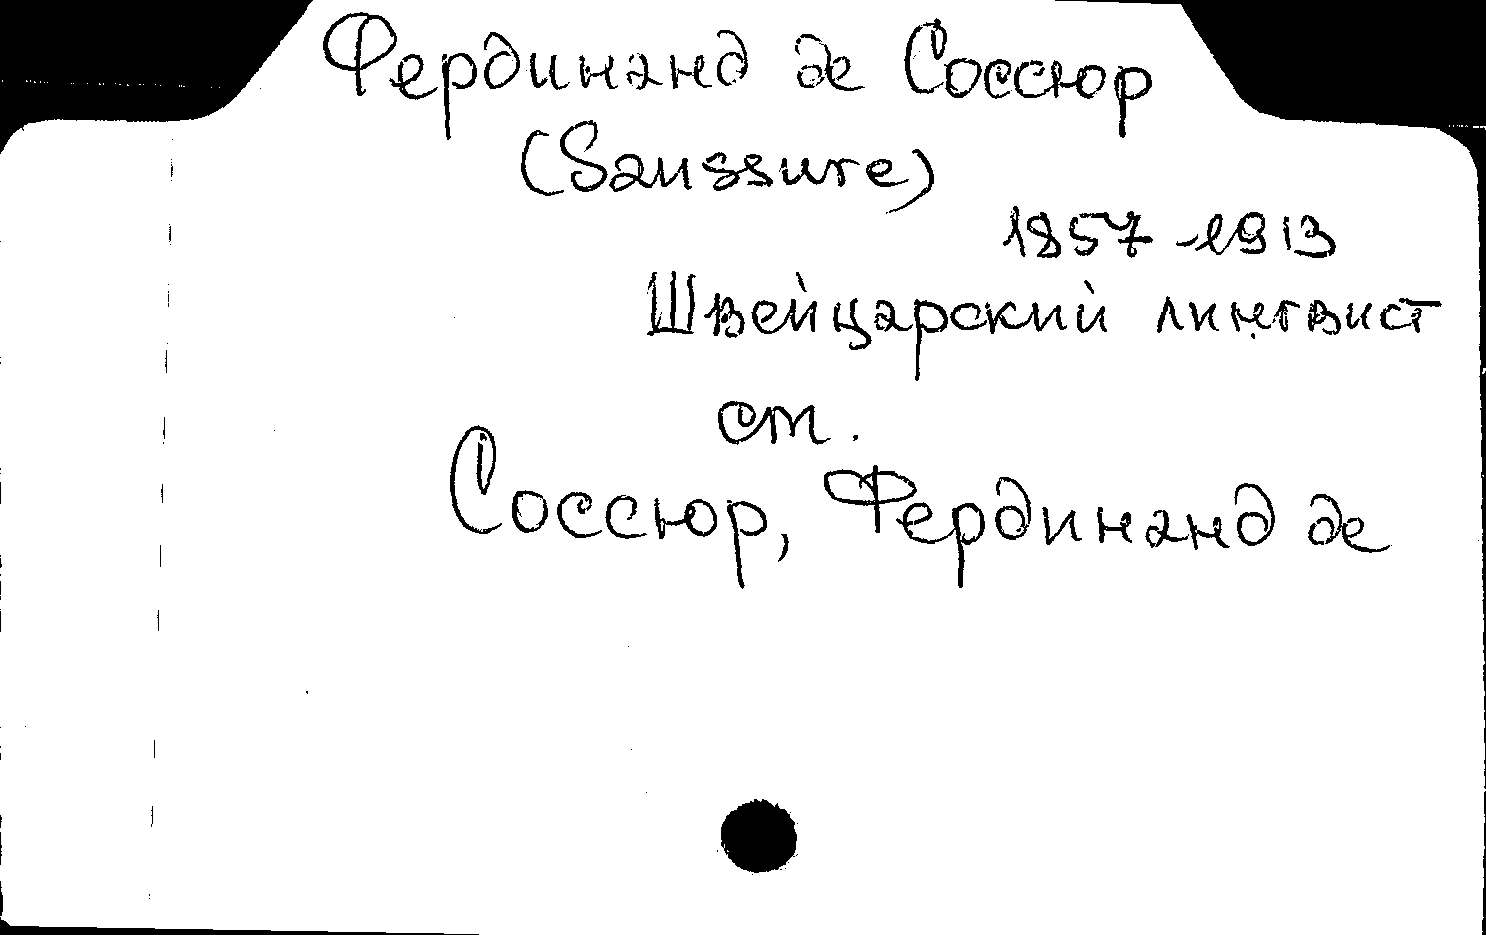 Фердинанд де Соссюр
(Saussure)
1857-1913
Швейцарский лингвист
см.
Соссюр, Фердинанд де